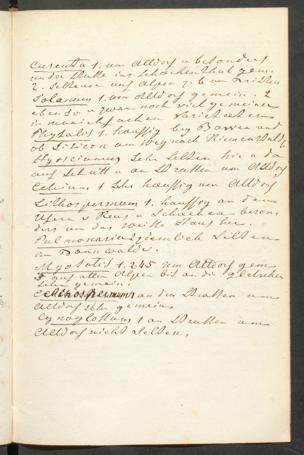 Cuscuta 1. um Altdorf u besonders
an der Straße ins Schächenthal gem.
2. Seltener auf Alpen z. B. am
Solanum 1. um Altdorf gemein. 2
ebenso u zwar noch viel gemeiner
in manichfachen Varietäten
Physalis 1. häuffig bey Bauen und
ob Silicon am weg nach Riemenstald.
Hyosciamus sehr selten hie u da
auf Schutt u an Straßen um Altdorf
Echium 1 Sehr häuffig um Altdorf
Lithospermum 1. häuffig an den
Ufern d Reuß u Schächen beson
ders um das weiße Haus her.
Pulmonaria 2 ziemlich Selten
im Bannwalde.
Myosotis 1. 2. 4. 5 um Altdorf gem.
3 auf allen Alpen bis an die gletscher
sehr gemein.
Lithospermum an den Straßen um
Altdorf sehr gemein
Cynoglossum 1 an Straßen um
Altdorf nicht Selten.